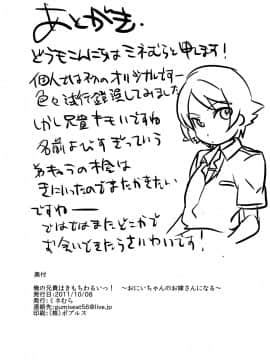 あとがき.
どうもこんにちはミネむらと申します!
個人では初のオリジナルですー
色々試行錯誤してみました
しかし兄貴キモいですね
名前よびすぎっていう
弟キュウの木会は
きにいったのでまたかきたい
ですねー
ではではまたどこかで
お会いできたらさいわいです!
奥付
俺の兄貴はきもちわるいっ! ～おにいちゃんのお嫁さんになる～
発行日:2011/10/08
発行:ミネむら
連絡先:gumiseat56@live.jp
印刷:(株)ポプルス